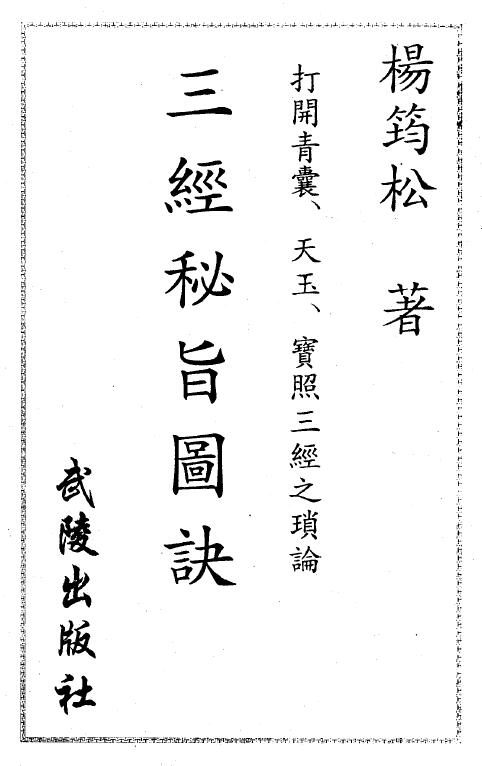 楊筠松 著
打開青囊、天玉、寶照三經之瑣論
三經秘旨圖訣
武陵出版社